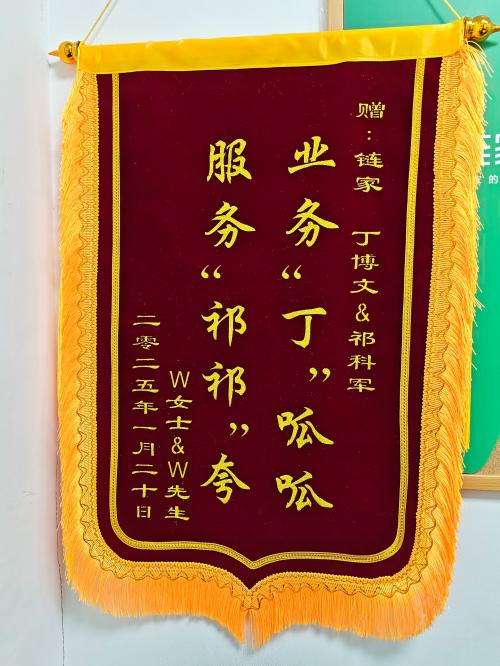 赠：链家 丁博文&祁科军
业务“丁”呱呱
服务“祁祁”夸
W女士&W先生
二零二五年一月二十日